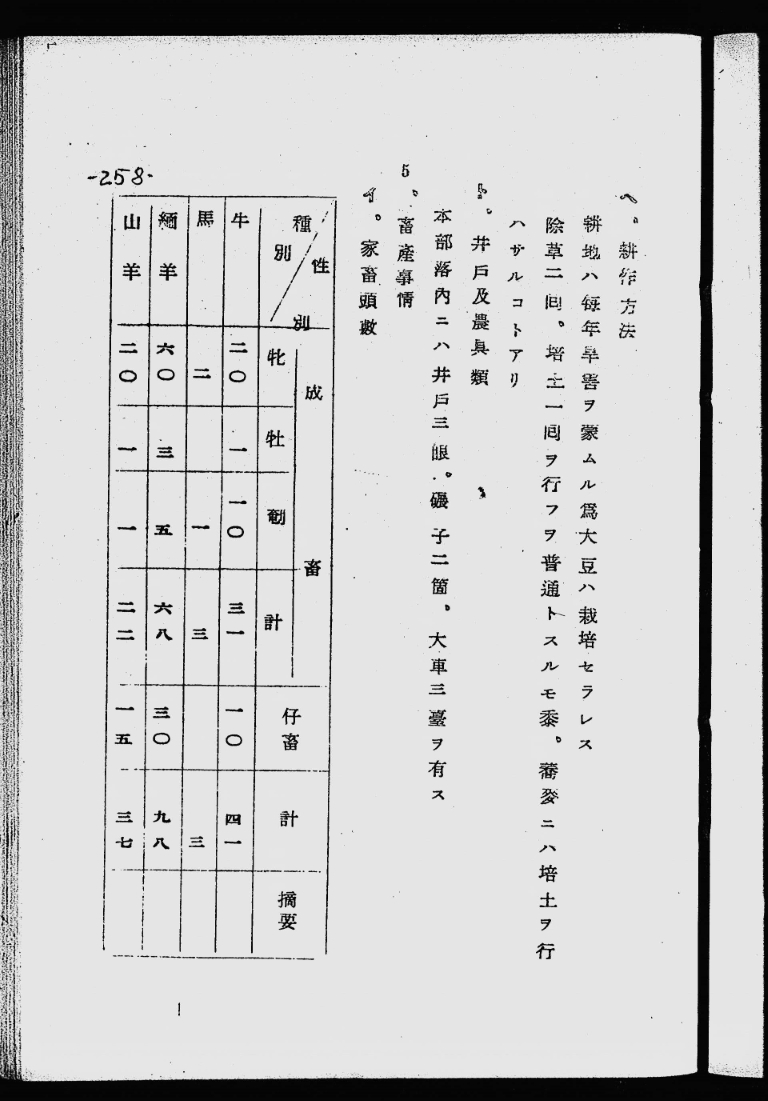 ヘ、耕作方法
耕地ハ每年旱害ヲ蒙ムル爲大豆ハ栽培セラレス
除草二囘。培土一囘ヲ行フヲ普通トスルモ黍。蕎麥ニハ培土ヲ行
ハサルコトアリ
ト。井戶及農具類
本部落內ニハ井戶三眼。磟子二箇。大車三臺ヲ有ス
5、畜產事情
イ。家畜頭數
種別 性別 成畜 牝 牡 騸 計 仔畜 計 摘要
牛 二〇 一 一〇 三一 一〇 四一
馬 二 一 三 三
緬羊 六〇 三 五 六八 三〇 九八
山羊 二〇 一 一 二二 一五 三七
-258-